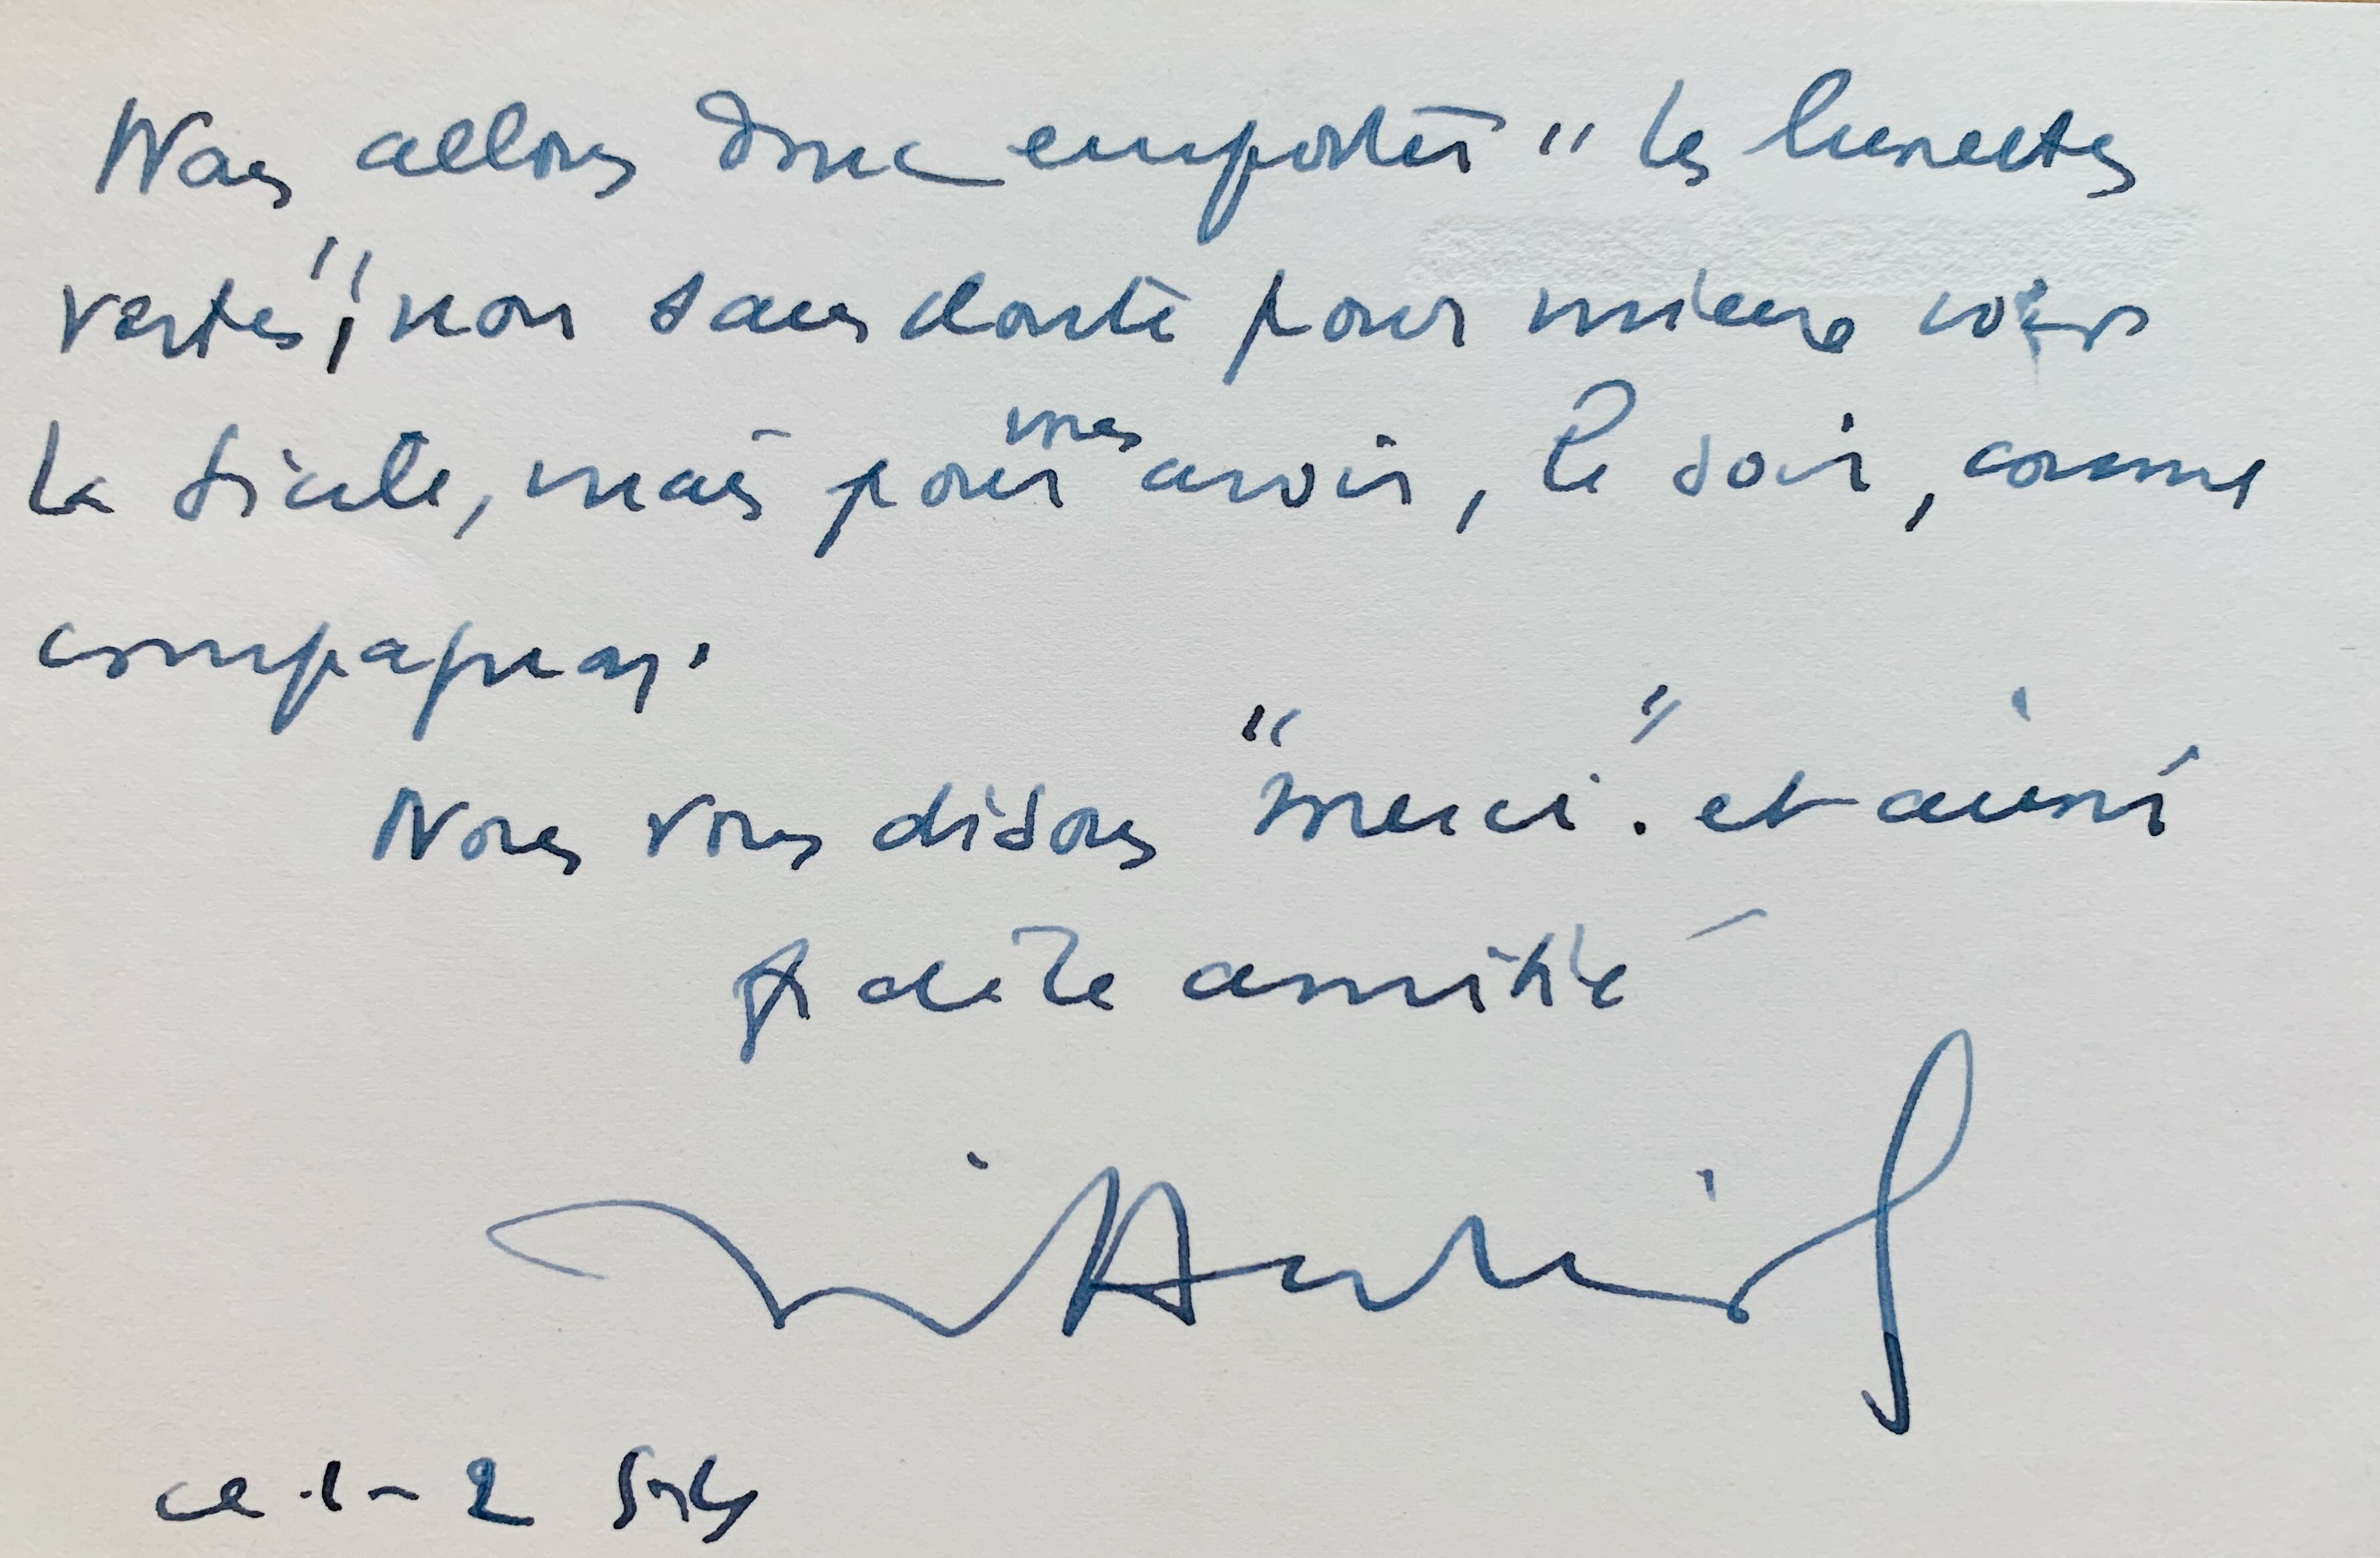 Nous allons donc emporter " les lunettes
vertes", non sans doute pour mieux voir
la Sicile, mais pour vous avoir, le soir, comme
compagnon.
Nous vous disons "merci". et aussi
fidèle amitié
ce 1-2